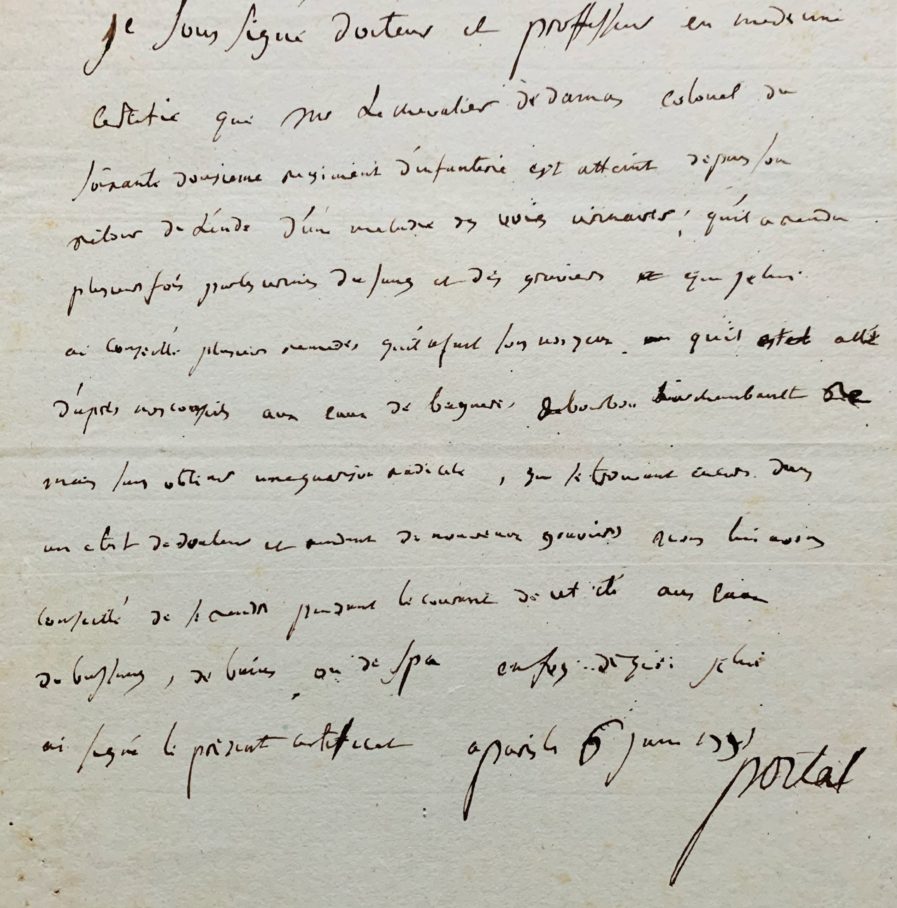 je sous signé docteur et proffesseur en medecine
certifie que mr Le chevalier de damas colonel du
soixante dousieme regiment d'infanterie est atteint depuis son
retour de L'inde d'un maladie des voies urinaires, qu'il a rendu
plusieurs fois par les urines du sang et des graviers que je lui
ai conseillé plusieurs remedes qu'il a fait sous nos yeux qu'il est allé
d'après nos conseils aux eaux de bagneres de bourbon Larchambault
mais sans obtenir une guerison radicale, que se trouvant encore dans
un etat de douleur et rendant de nouveaux graviers nous lui avons
conseillé de se rendre pendant le courant de cet été aux eaux
de bussang, de ou de spa en foy de quoi je lui
ai signé le présent certificat a paris le 6 juin 1791
portal